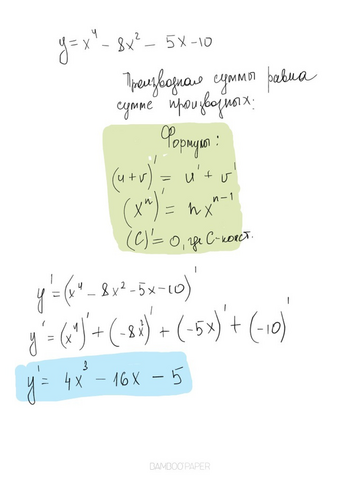 y = x⁴ - 8x² - 5x - 10
Производная суммы равна
сумме производных:
Формулы:
(u+v)' = u' + v'
(xⁿ)' = nxⁿ⁻¹
(C)' = 0, где C-конст.
y' = (x⁴ - 8x² - 5x - 10)'
y' = (x⁴)' + (-8x²)' + (-5x)' + (-10)'
y' = 4x³ - 16x - 5
BAMBOO PAPER